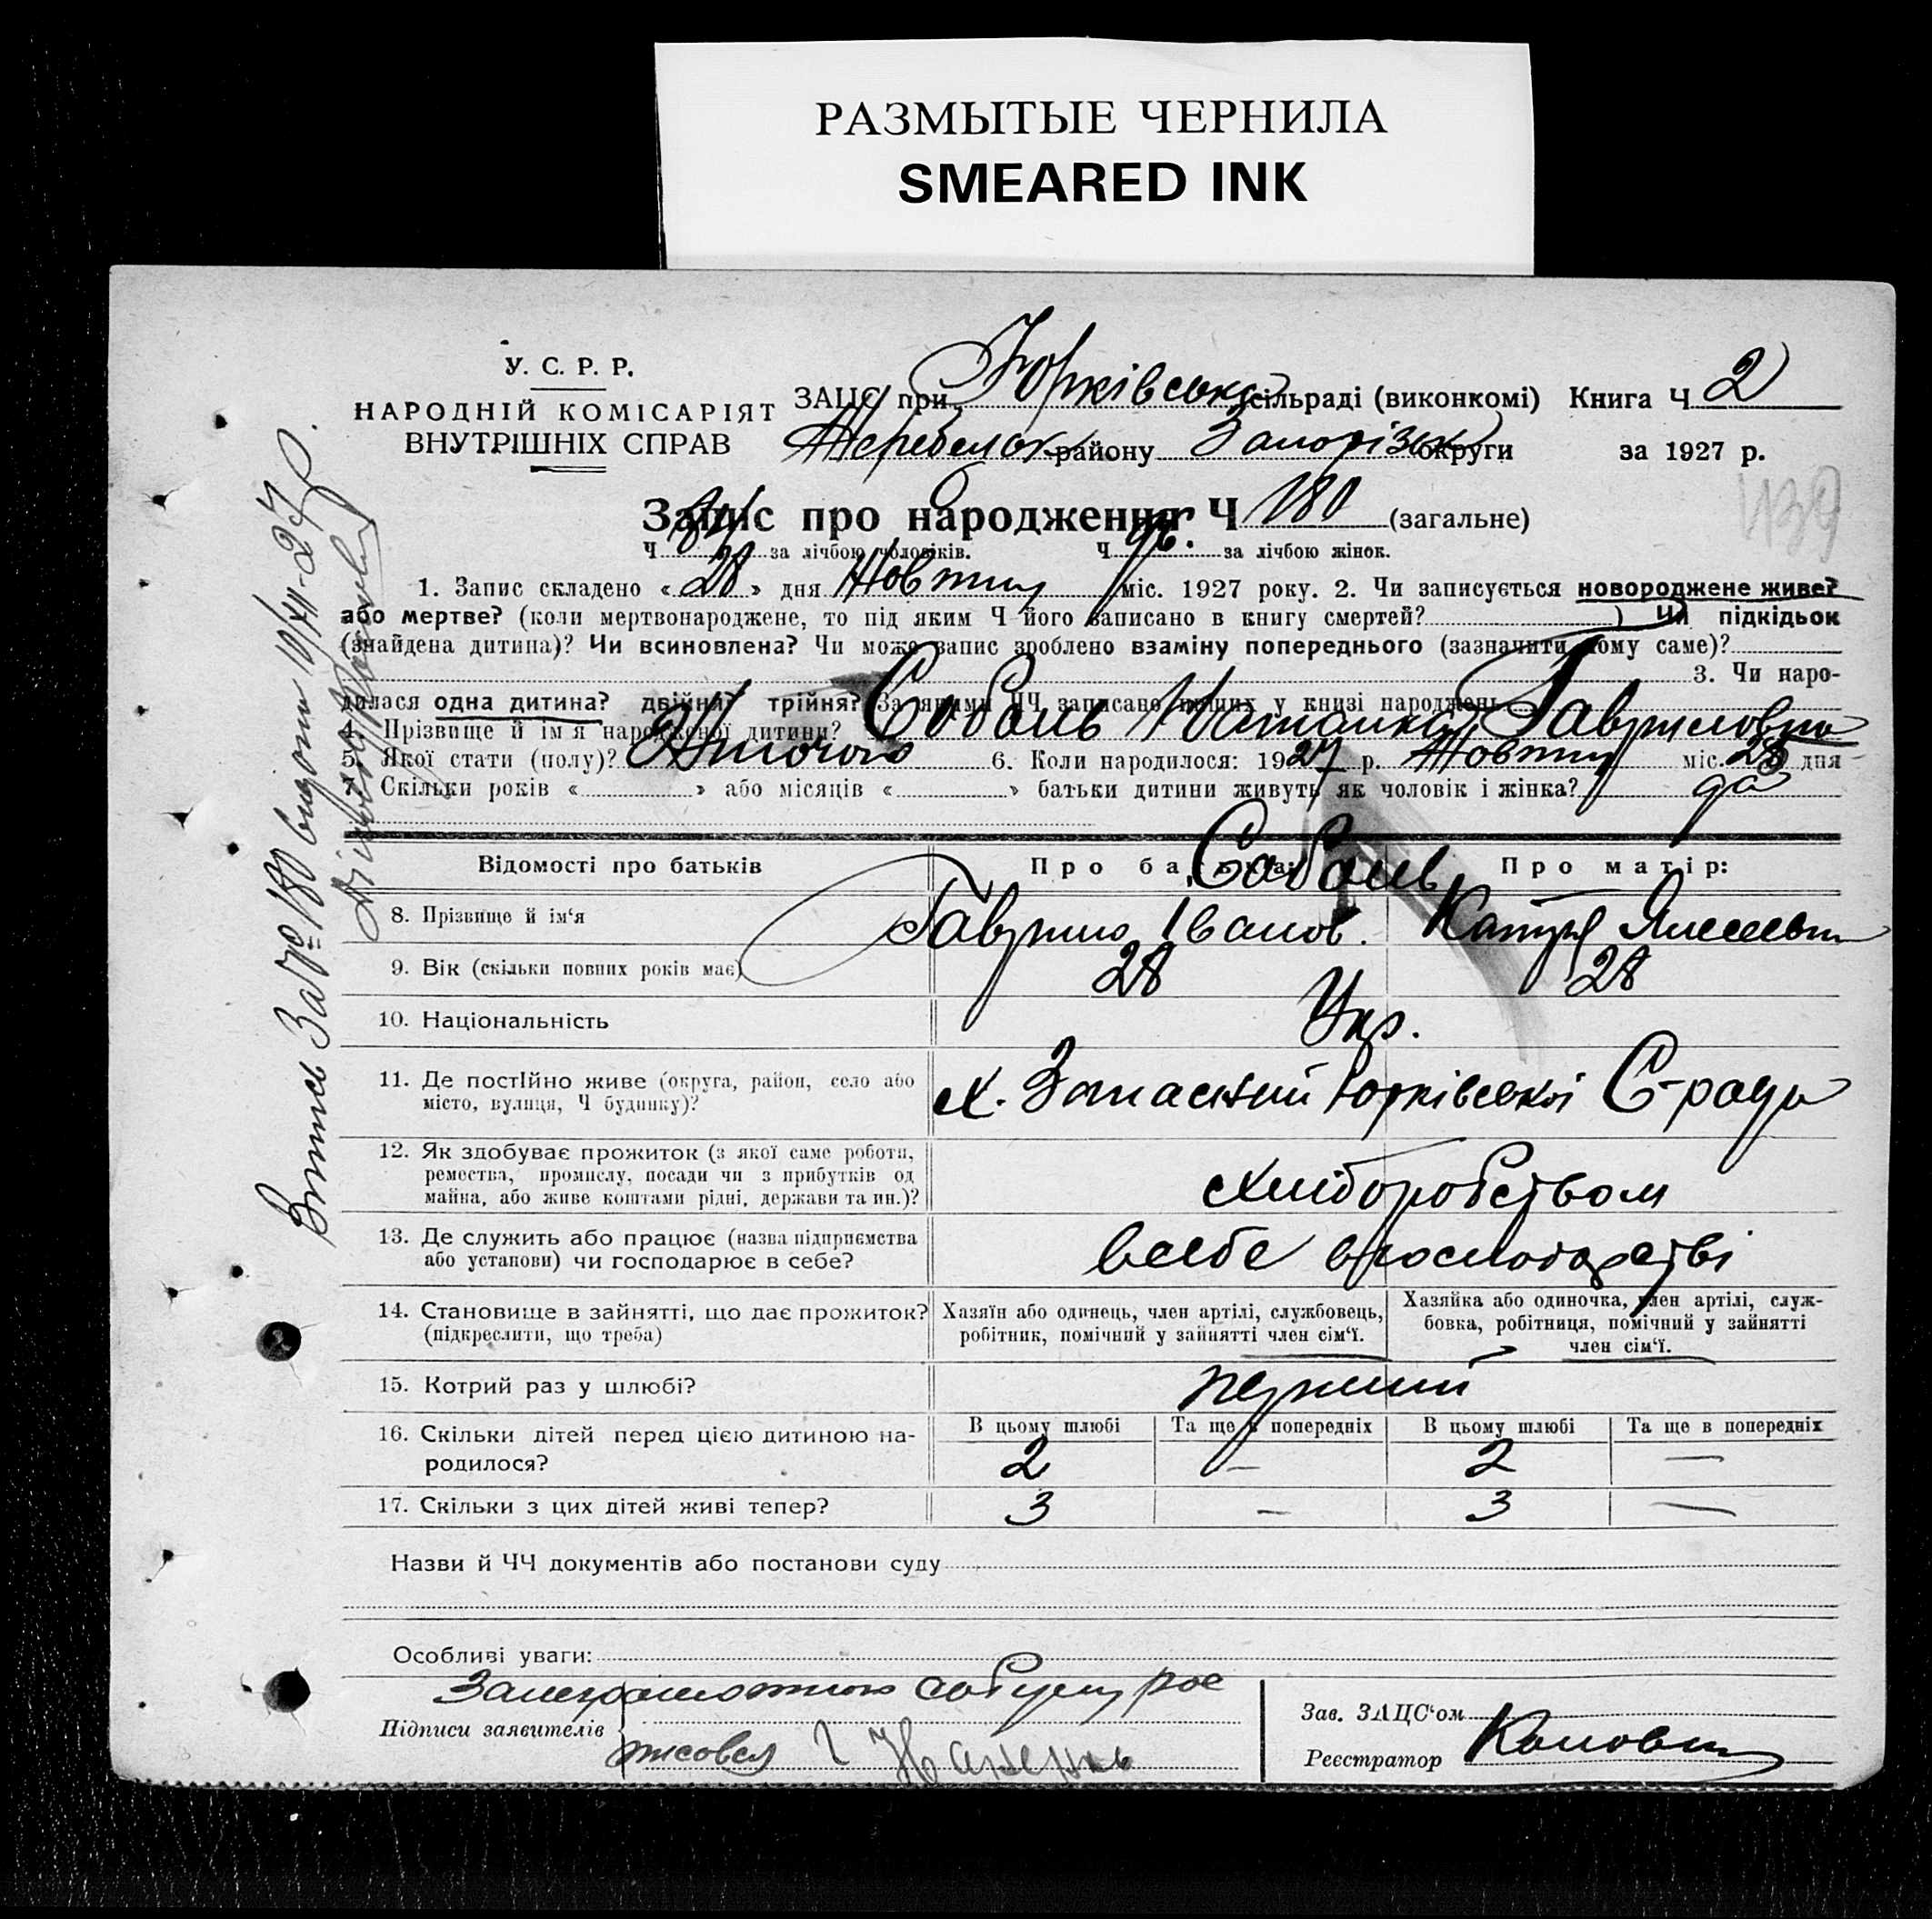 РАЗМЫТЫЕ ЧЕРНИЛА
SMEARED INK
У. С. Р. Р.
НАРОДНІЙ КОМІСАРІЯТ
ВНУТРІШНІХ СПРАВ
ЗАЦС при Юрківській сільраді (виконкомі) Книга Ч 2
району Запорізьк округи за 1927 р.
139
Запис про народження Ч 180 (загальне)
Ч за лічбою чоловіків. Ч 96. за лічбою жінок.
1. Запис складено « 28 » дня Жовтня міс. 1927 року. 2. Чи записується новороджене живе?
або мертве? (коли мертвонароджене, то під яким Ч його записано в книгу смертей? ) Чи підкідьок
(знайдена дитина)? Чи всиновлена? Чи може запис зроблено взаміну попереднього (зазначити кому саме)?
3. Чи наро-
дилася одна дитина? двійня? трійня? За якими ЧЧ записано інших у книзі народжень
4. Прізвище й ім'я народженої дитини? Собань Наталка Гавриловна
5. Якої стати (полу)? Жіночого 6. Коли народилося: 1927 р. Жовтня міс. 25 дня
7. Скільки років « » або місяців « » батьки дитини живуть як чоловік і жінка? да
Відомості про батьків Про батька: Про матір:
Собань
8. Прізвище й ім'я Гаврило Іванов. Катря
9. Вік (скільки повних років має) 28 28
10. Національність Укр.
11. Де постійно живе (округа, район, село або
місто, вулиця, Ч будинку)? х. Запасний Юрківської С-ради
12. Як здобуває прожиток (з якої саме роботи,
ремества, промислу, посади чи з прибутків од
майна, або живе коштами рідні, держави та ин.)? хліборобством
13. Де служить або працює (назва підприємства
або установи) чи господарює в себе? всебе в господарстві
14. Становище в зайнятті, що дає прожиток?
(підкреслити, що треба)
Хазяїн або одинець, член артілі, службовець,
робітник, помічний у зайнятті член сім'ї.
Хазяйка або одиночка, член артілі, служ-
бовка, робітниця, помічний у зайнятті
член сім'ї.
15. Котрий раз у шлюбі? перший
В цьому шлюбі Та ще в попередніх В цьому шлюбі Та ще в попередніх
16. Скільки дітей перед цією дитиною на-
родилося? 2 — 2 —
17. Скільки з цих дітей живі тепер? 3 — 3 —
Назви й ЧЧ документів або постанови суду
Особливі уваги:
Підписи заявителів
Зав. ЗАЦС'ом
Реєстратор
Витяг За № 180 видано 10/XII-27 р.